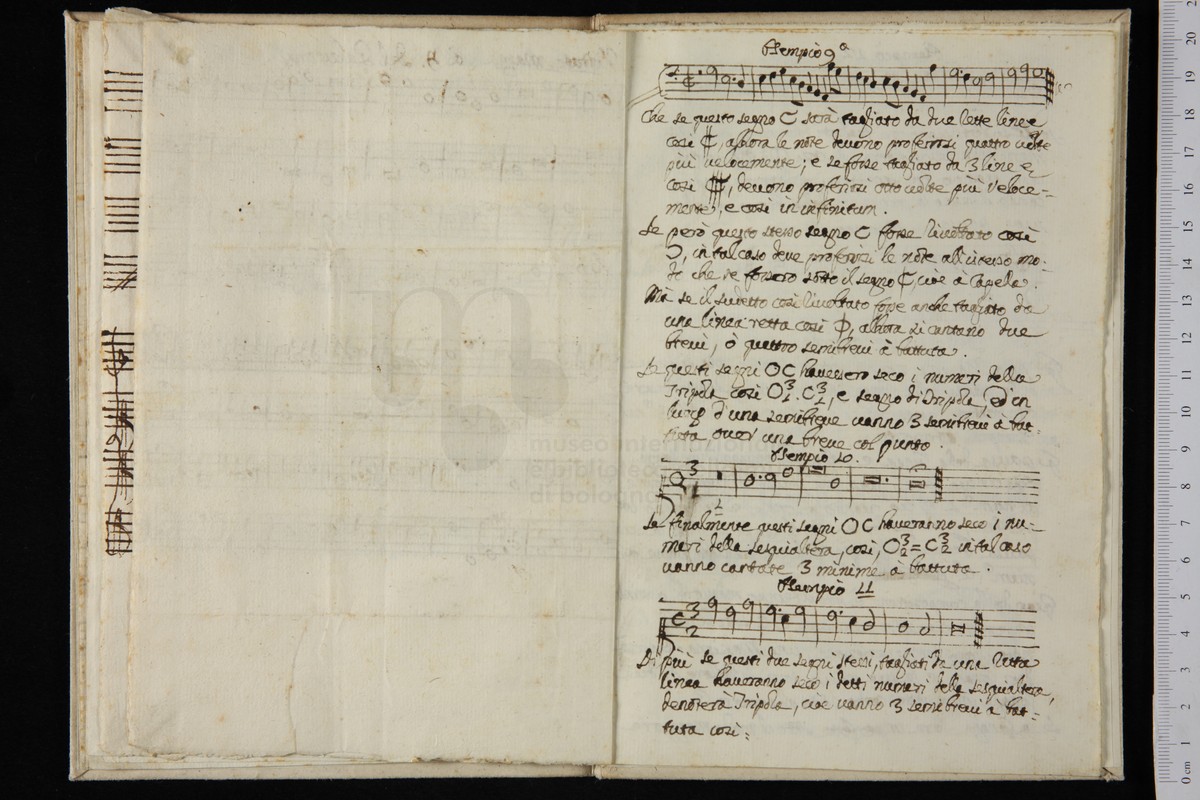 Esempio 9º
Che se questo segno C sarà tagliato da due rette linee
così ₵, allora le note devono proferirsi quattro volte
più velocemente; e se fosse tagliato da 3 linee
così ₵, devono proferirsi otto volte più veloce=
mente, e così in infinitum.
Se però questo stesso segno C fosse rivoltato così
Ɔ, in tal caso deve proferirsi le note all'istesso mo=
do che se fossero sotto il segno ₵, cioè à Capella.
Mà se il sudetto così rivoltato fosse anche tagliato da
una linea retta così, allora si cantano due
brevi, ò quattro semibrevi à battuta.
Se questi segni O C havessero seco i numeri della
Tripola così O 3/1. C 3/1, è segno di Tripola, ed in
luogo d'una semibreve vanno 3 semibrevi à bat=
tuta over una breve col punto
Esempio 10.
3
1
Se finalmente questi segni O C haveranno seco i nu=
meri della sesquialtera, così, O 3/2 = C 3/2 in tal caso
vanno cantate 3 minime à battuta.
Esempio 11
C 3
2
Di più se questi due segni stessi, tagliati da una retta
linea haveranno seco i detti numeri della sesquialtera,
denoterà Tripola, cioè vanno 3 semibrevi à bat=
tuta così:
museo internazionale
e biblioteca
di bologna
0 cm 1 2 3 4 5 6 7 8 9 10 11 12 13 14 15 16 17 18 19 20 2